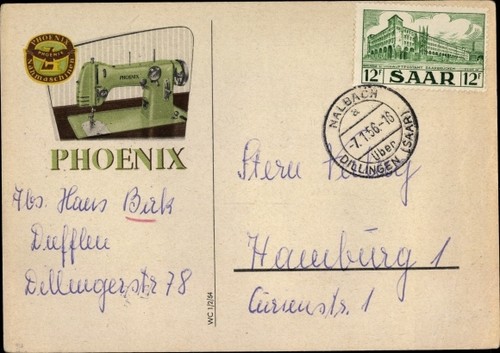 PHOENIX
PHOENIX
Nähmaschinen
PHOENIX
PHOENIX
Abs. Hans Birk
Dufflen
Dillingerstr 78
WC 1/2/54
12F SAAR 12F
NALBACH
a
-7.1.56-16
über
DILLINGEN (SAAR)
Stern
Hamburg 1
Curienstr. 1